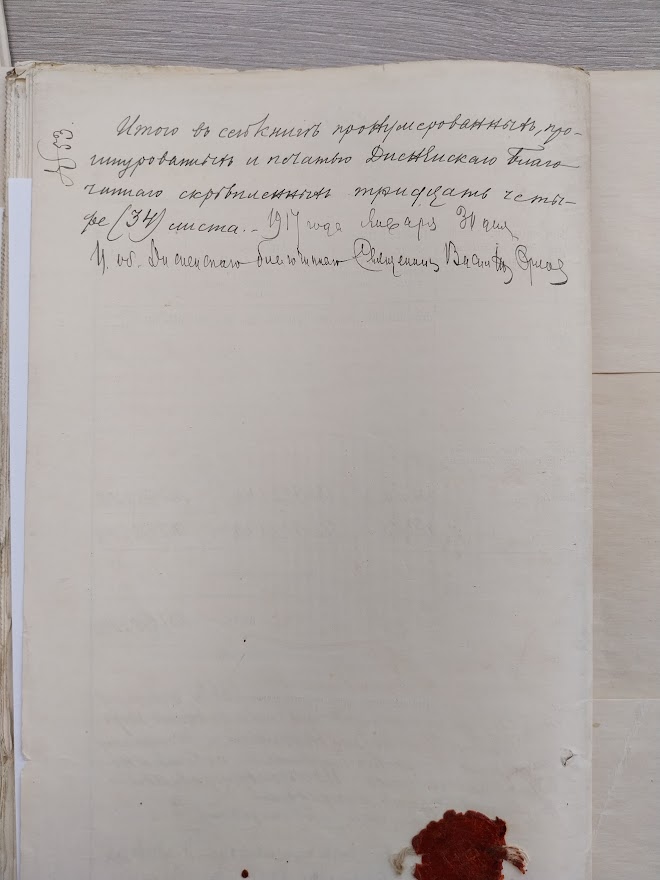 № 53.
Итого въ сей книгѣ пронумерованныхъ, про-
шнурованныхъ и печатью Дисненскаго Благо-
чиннаго скрѣпленныхъ тридцать четы-
ре (34) листа. - 1917 года Января 30 дня
И. об. Дисненскаго благочиннаго Священникъ Василій Орлов